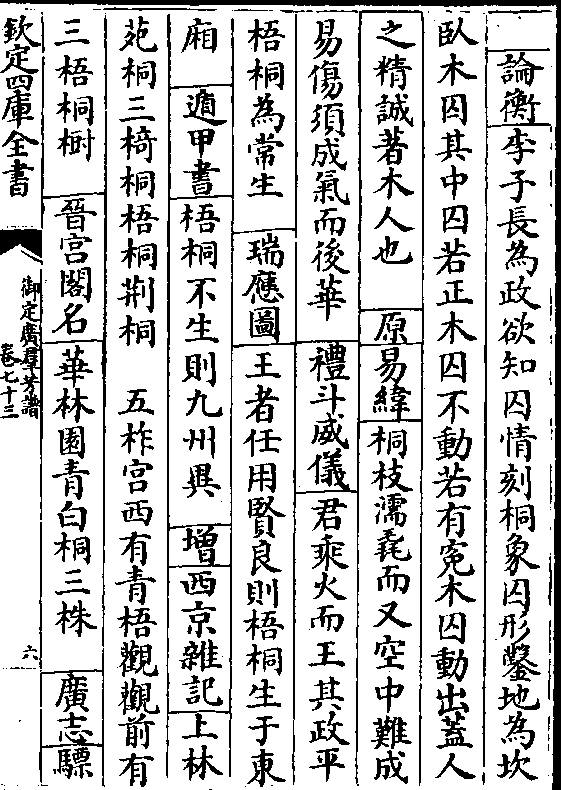 論衡李子長為政欲知囚情刻桐象囚形鑿地為坎
臥木囚其中囚若正木囚不動若有寃木囚動出蓋人
之精誠著木人也 原易緯桐枝濡毳而又空中難成
易傷須成氣而後華 禮斗威儀君乘火而王其政平
梧桐為常生 瑞應圖王者任用賢良則梧桐生于東
廂 遁甲書梧桐不生則九州異 增西京雜記上林
苑桐三椅桐梧桐荆桐 五柞宫西有青梧觀觀前有
三梧桐樹 晉宫閣名華林園青白桐三株 廣志驃
欽定四庫全書
御定廣羣芳譜
卷七十三
六